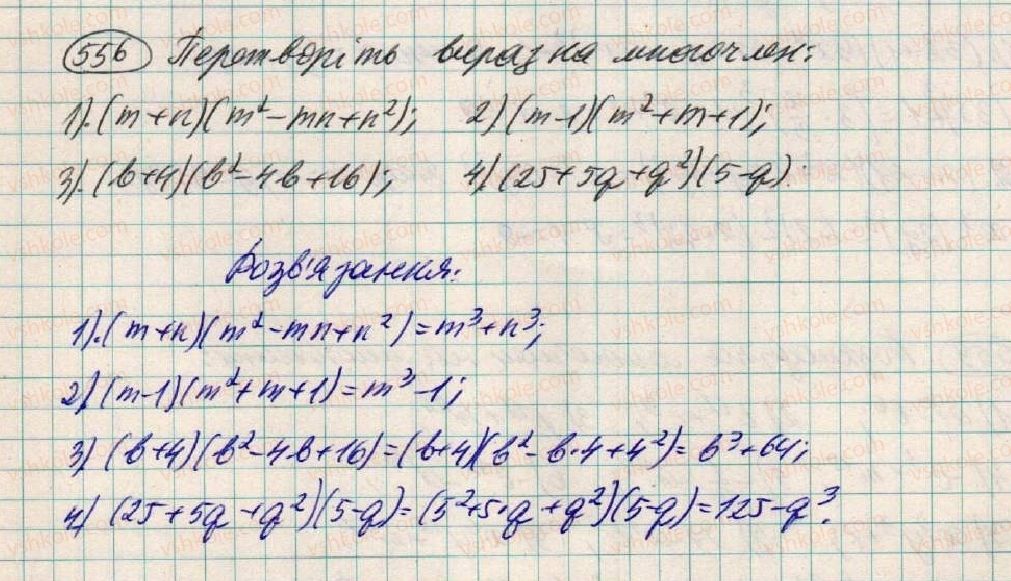 556 Перетворіть вираз на многочлен:
1). (m+n)(m²-mn+n²); 2) (m-1)(m²+m+1);
3). (b+4)(b²-4b+16); 4) (25+5q+q²)(5-q).
Розв'язання:
1). (m+n)(m²-mn+n²)=m³+n³;
2) (m-1)(m²+m+1)=m³-1;
3) (b+4)(b²-4b+16)=(b+4)(b²-b·4+4²)=b³+64;
4) (25+5q+q²)(5-q)=(5²+5·q+q²)(5-q)=125-q³.